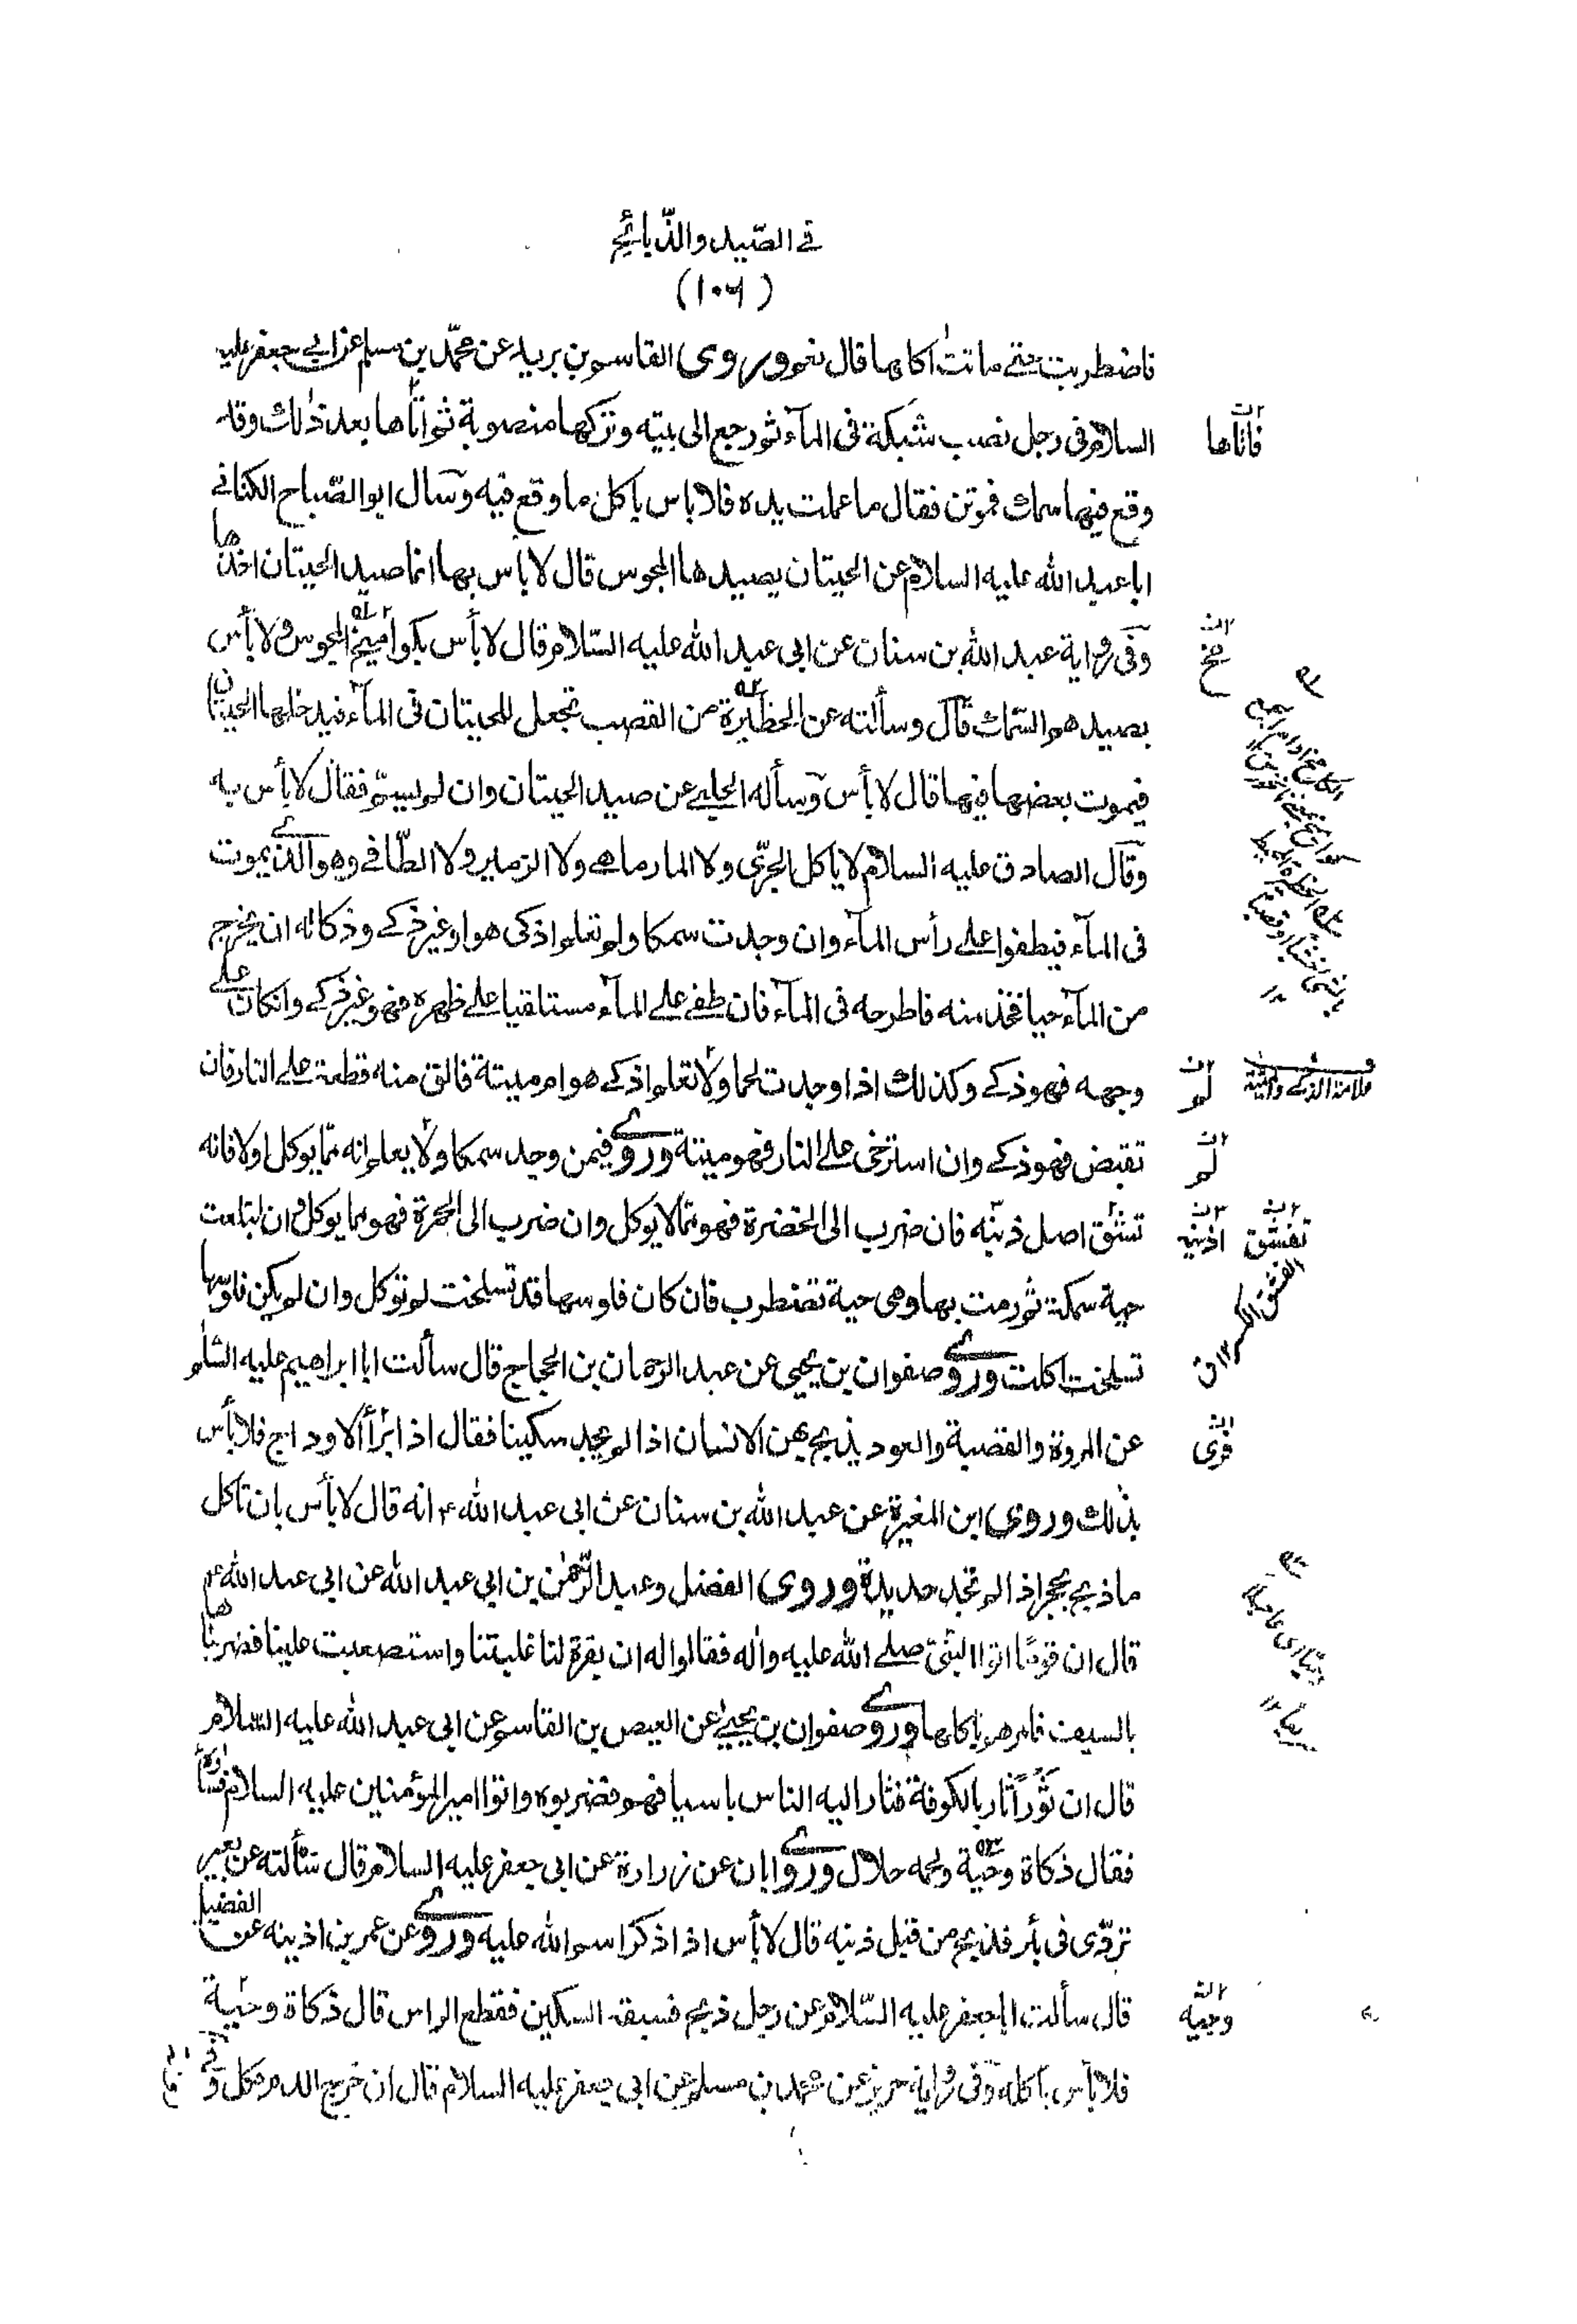 في الصّيد والذّبائح
(١٠٦)
فاضطربت حتے ماتت اكلها قال نعم وروى القاسم بن بريد عن محمّد بن مسلم عن ابي جعفر عليه
السلام فى رجل نصب شبكة فى المآء ثم رجع الى بيته وتركها منصوبة ثم اتاها بعد ذلك وقد
فاتاها
وقع فيها سمك فموتن فقال ما عملت يده فلا باس باكل ما وقع فيه وسال ابو الصّباح الكنانے
ابا عبد الله عليه السلام عن الحيتان يصيدها المجوس قال لا بأس بها انما صيد الحيتان اخذها
وفى رواية عبد الله بن سنان عن ابى عبد الله عليه السّلام قال لا بأس بكواميخ المجوس ولا بأس
بصيدهم السّمك قال وسألته عن الحظيرة من القصب تجعل للحيتان فى المآء فيدخلها الحيتان
فيموت بعضها فيها قال لا بأس وسأله الحلبے عن صيد الحيتان وان لم يسمّ فقال لا بأس به
وقال الصادق عليه السلام لا ياكل الجرّى ولا المارماهے ولا الزمير ولا الطّافے وهو الذے يموت
فى المآء فيطفوا علے رأس المآء وان وجدت سمكا ولم تعلم اذكى هو او غير ذكے وذكاته ان يخرج
من المآء حيا فخذ منه فاطرحه فى المآء فان طفے علے المآء مستلقيا علے ظهره فهو غير ذكے وانكان علے
وجهه فهو ذكے وكذلك اذا وجدت لحما ولا تعلم اذكے هو ام ميتة فالق منه قطعة علے النار فان
لم
علامة الذكے والميتة
تقبض فهو ذكے وان استرخى علے النار فهو ميتة وروے فيمن وجد سمكا ولا يعلم انه ممّا يوكل او لا فانه
لم
تشق اصل ذنبه فان ضرب الى الخضرة فهو ممّا لا يوكل وان ضرب الى الحمرة فهو مما يوكل وان ابتلعت
اذنيه
تفشق
حية سمكة ثم رمت بها وهى حية تضطرب فان كان فلوسها قد تسلخت لم توكل وان لم يكن فلوسها
تسلخت اكلت وروے صفوان بن يحيى عن عبد الرحمان بن الحجاج قال سألت ابا ابراهيم عليه السّلم
عن المروة والقصبة والعود يذبح بهن الانسان اذا لم يجد سكينا فقال اذا ابرأ الاوداج فلا بأس
فرى
بذلك وروى ابن المغيرة عن عبد الله بن سنان عن ابى عبد الله ع انه قال لا بأس بان تاكل
ما ذبح بحجر اذا لم تجد حديدة وروى الفضل وعبد الرّحمن بن ابى عبد الله عن ابى عبد الله ع
قال ان قومًا اتوا النبىّ صلے الله عليه واله فقالوا له ان بقرة لنا غلبتنا واستصعبت علينا فضربناها
بالسيف فامرهم باكلها وروے صفوان بن يحيے عن العيص بن القاسم عن ابى عبد الله عليه السّلام
قال ان ثورًا ثار بالكوفة فثار اليه الناس باسيافهم فضربوه واتوا امير المؤمنين عليه السلام فسألوه
فقال ذكاة وحيّة ولحمه حلال وروے ابان عن زرارة عن ابى جعفر عليه السلام قال سألته عن بعير
تردّى فى بئر فذبح من قبل ذنبه قال لا بأس اذا ذكر اسم الله عليه وروے عن عمر بن اذينه عن الفضيل
قال سألت ابا جعفر عليه السّلام عن رجل ذبح فسبقه السكين فقطع الراس قال ذكاة وحيّة
وجيه
فلا بأس باكله وفى رواية حريز عن محمد بن مسلم عن ابى جعفر عليه السلام قال ان خرج الدم فكل وفے